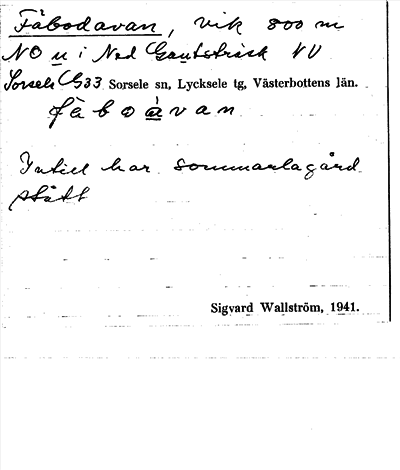 Fäbodavan, vik 800 m
NO u i Ned Gautsträsk NV
Sorsele G33 Sorsele sn, Lycksele tg, Västerbottens län.
fä̀boàvan
Intill har sommarlagård
stått
Sigvard Wallström, 1941.